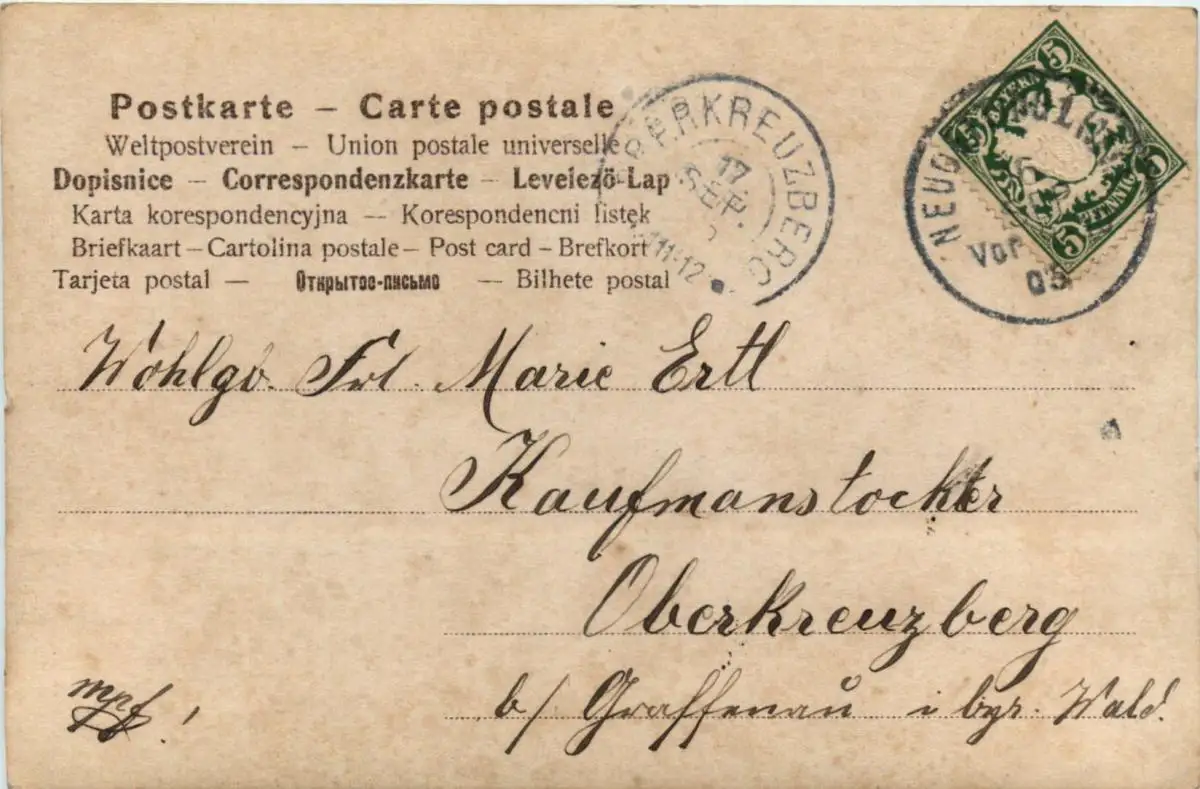 Postkarte – Carte postale
Weltpostverein – Union postale universelle
Dopisnice – Correspondenzkarte – Levelező-Lap
Karta korespondencyjna — Korespondencni listek
Briefkaart – Cartolina postale – Post card – Brefkort
Tarjeta postal — Открытое-письмо — Bilhete postal
OBERKREUZBERG
17
SEP.
11-12
BAYERN
5
5
5
5
PFENNIG
Vor
03
Wohlgb. Frl. Marie Ertl
Kaufmanstochter
Oberkreuzberg
b/ Graffenau i byr. Wald.